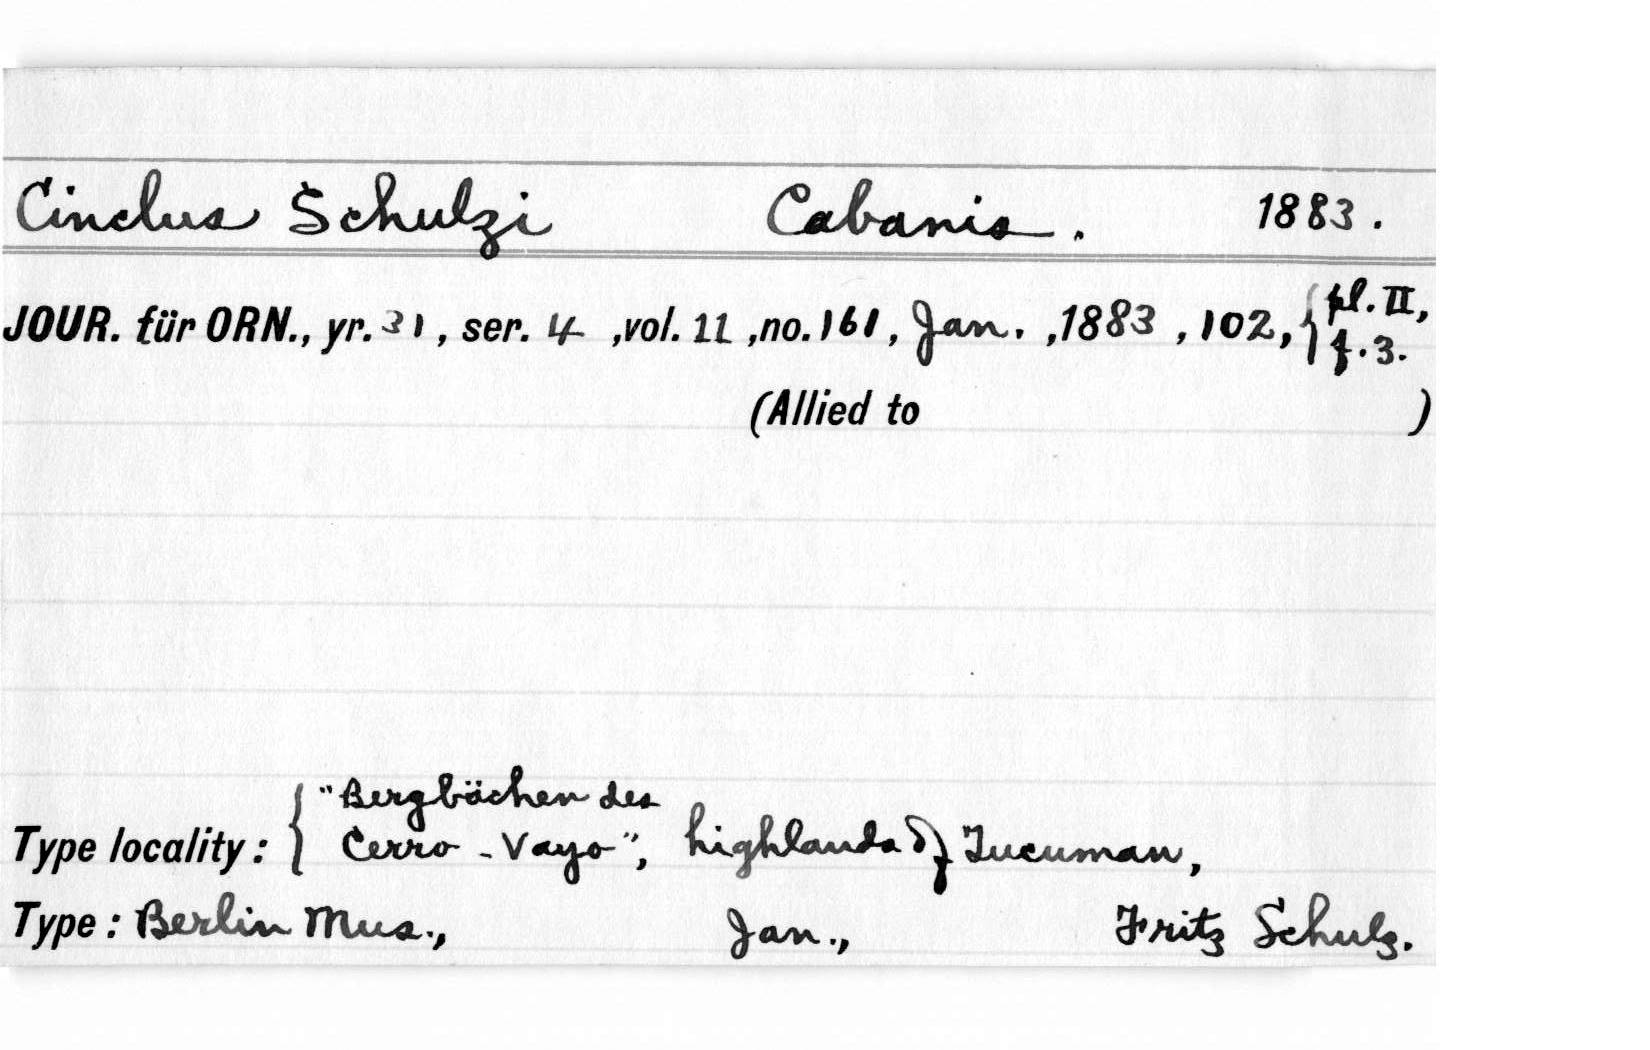 Cinclus Schulzi Cabanis. 1883.
JOUR. für ORN., yr. 31, ser. 4, vol. 11, no. 161, Jan., 1883, 102, { pl. II, f. 3.
(Allied to )
Type locality: { "Bergbächen des
Cerro-Vayo", highlands of Tucuman,
Type: Berlin Mus., Jan., Fritz Schulz.